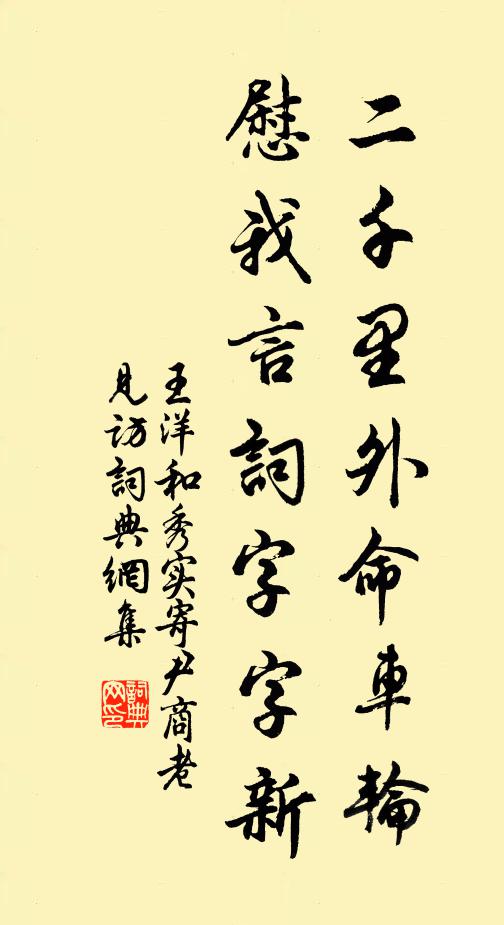 二千里外命車輪
慰我言詞字字新
王洋和秀实寄尹商老
見訪詞典網集
詞典網印